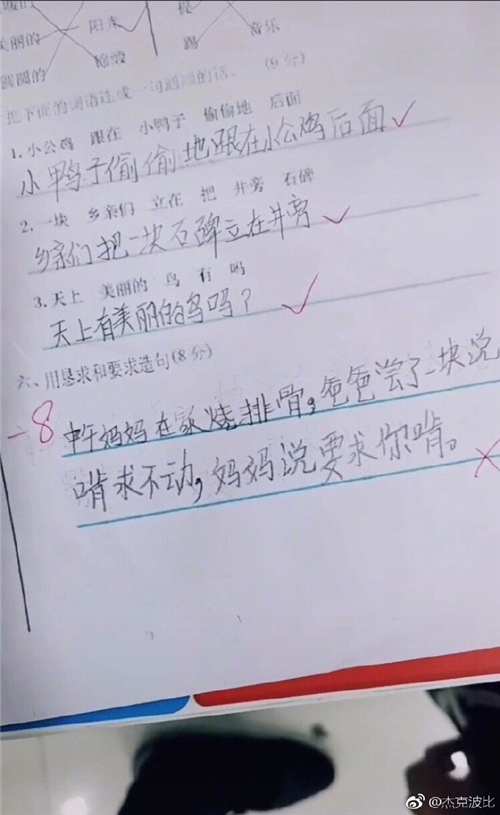 美丽的 阳光
圆圆的 踢 音乐
把下面的词语连成一句通顺的话。 (9分)
1.小公鸡 跟在 小鸭子 偷偷地 后面
小鸭子偷偷地跟在小公鸡后面
2.一块 乡亲们 立在 把 井旁 石碑
乡亲们把一块石碑立在井旁
3.天上 美丽的 鸟 有 吗
天上有美丽的鸟吗?
六、用恳求和要求造句(8分)
-8
中午妈妈在家烧排骨,爸爸尝了一块说
啃求不动,妈妈说要求你啃。
@杰克波比